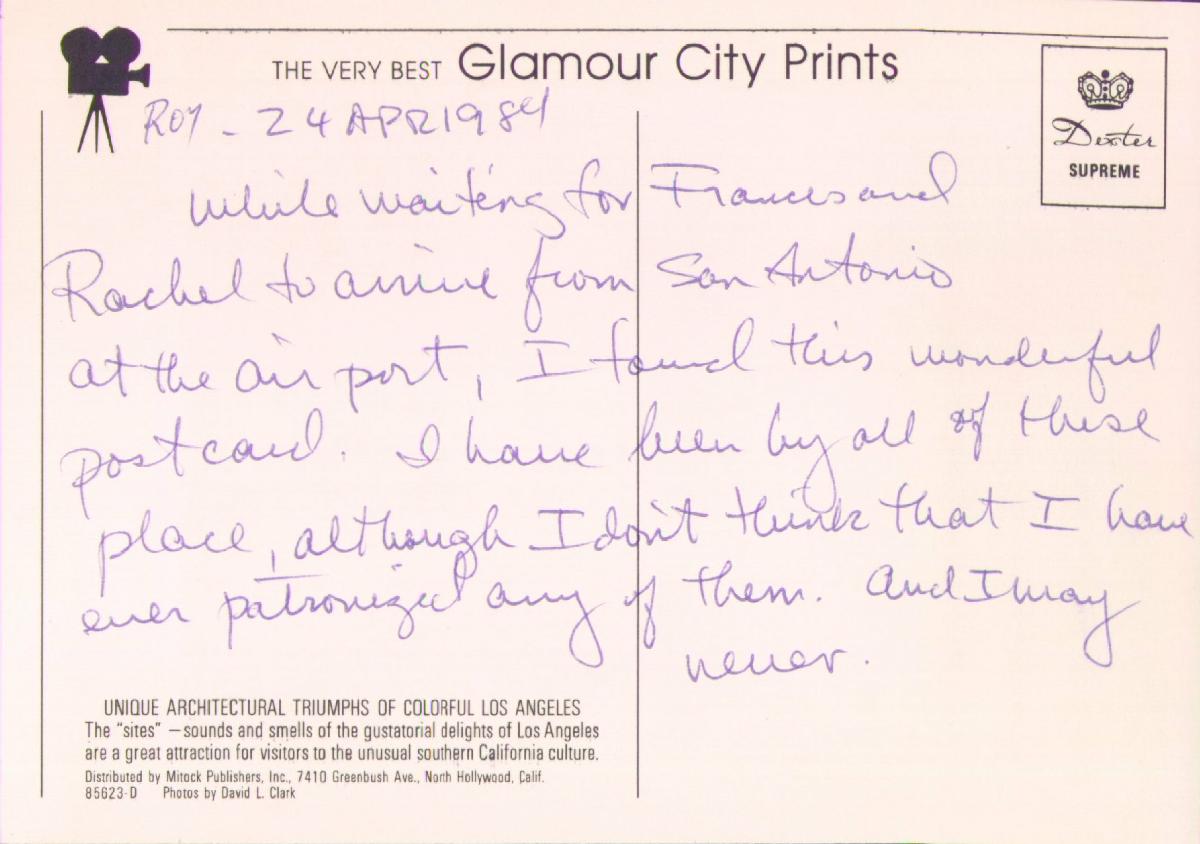 THE VERY BEST Glamour City Prints
Dexter
SUPREME
ROY - 24 APR 1984
While waiting for Frances and
Rachel to arrive from San Antonio
at the air port, I found this wonderful
postcard. I have been by all of these
place, although I don't think that I have
ever patronized any of them. And I may
never.
UNIQUE ARCHITECTURAL TRIUMPHS OF COLORFUL LOS ANGELES
The "sites" — sounds and smells of the gustatorial delights of Los Angeles
are a great attraction for visitors to the unusual southern California culture.
Distributed by Mitock Publishers, Inc., 7410 Greenbush Ave., North Hollywood, Calif.
85623-D Photos by David L. Clark